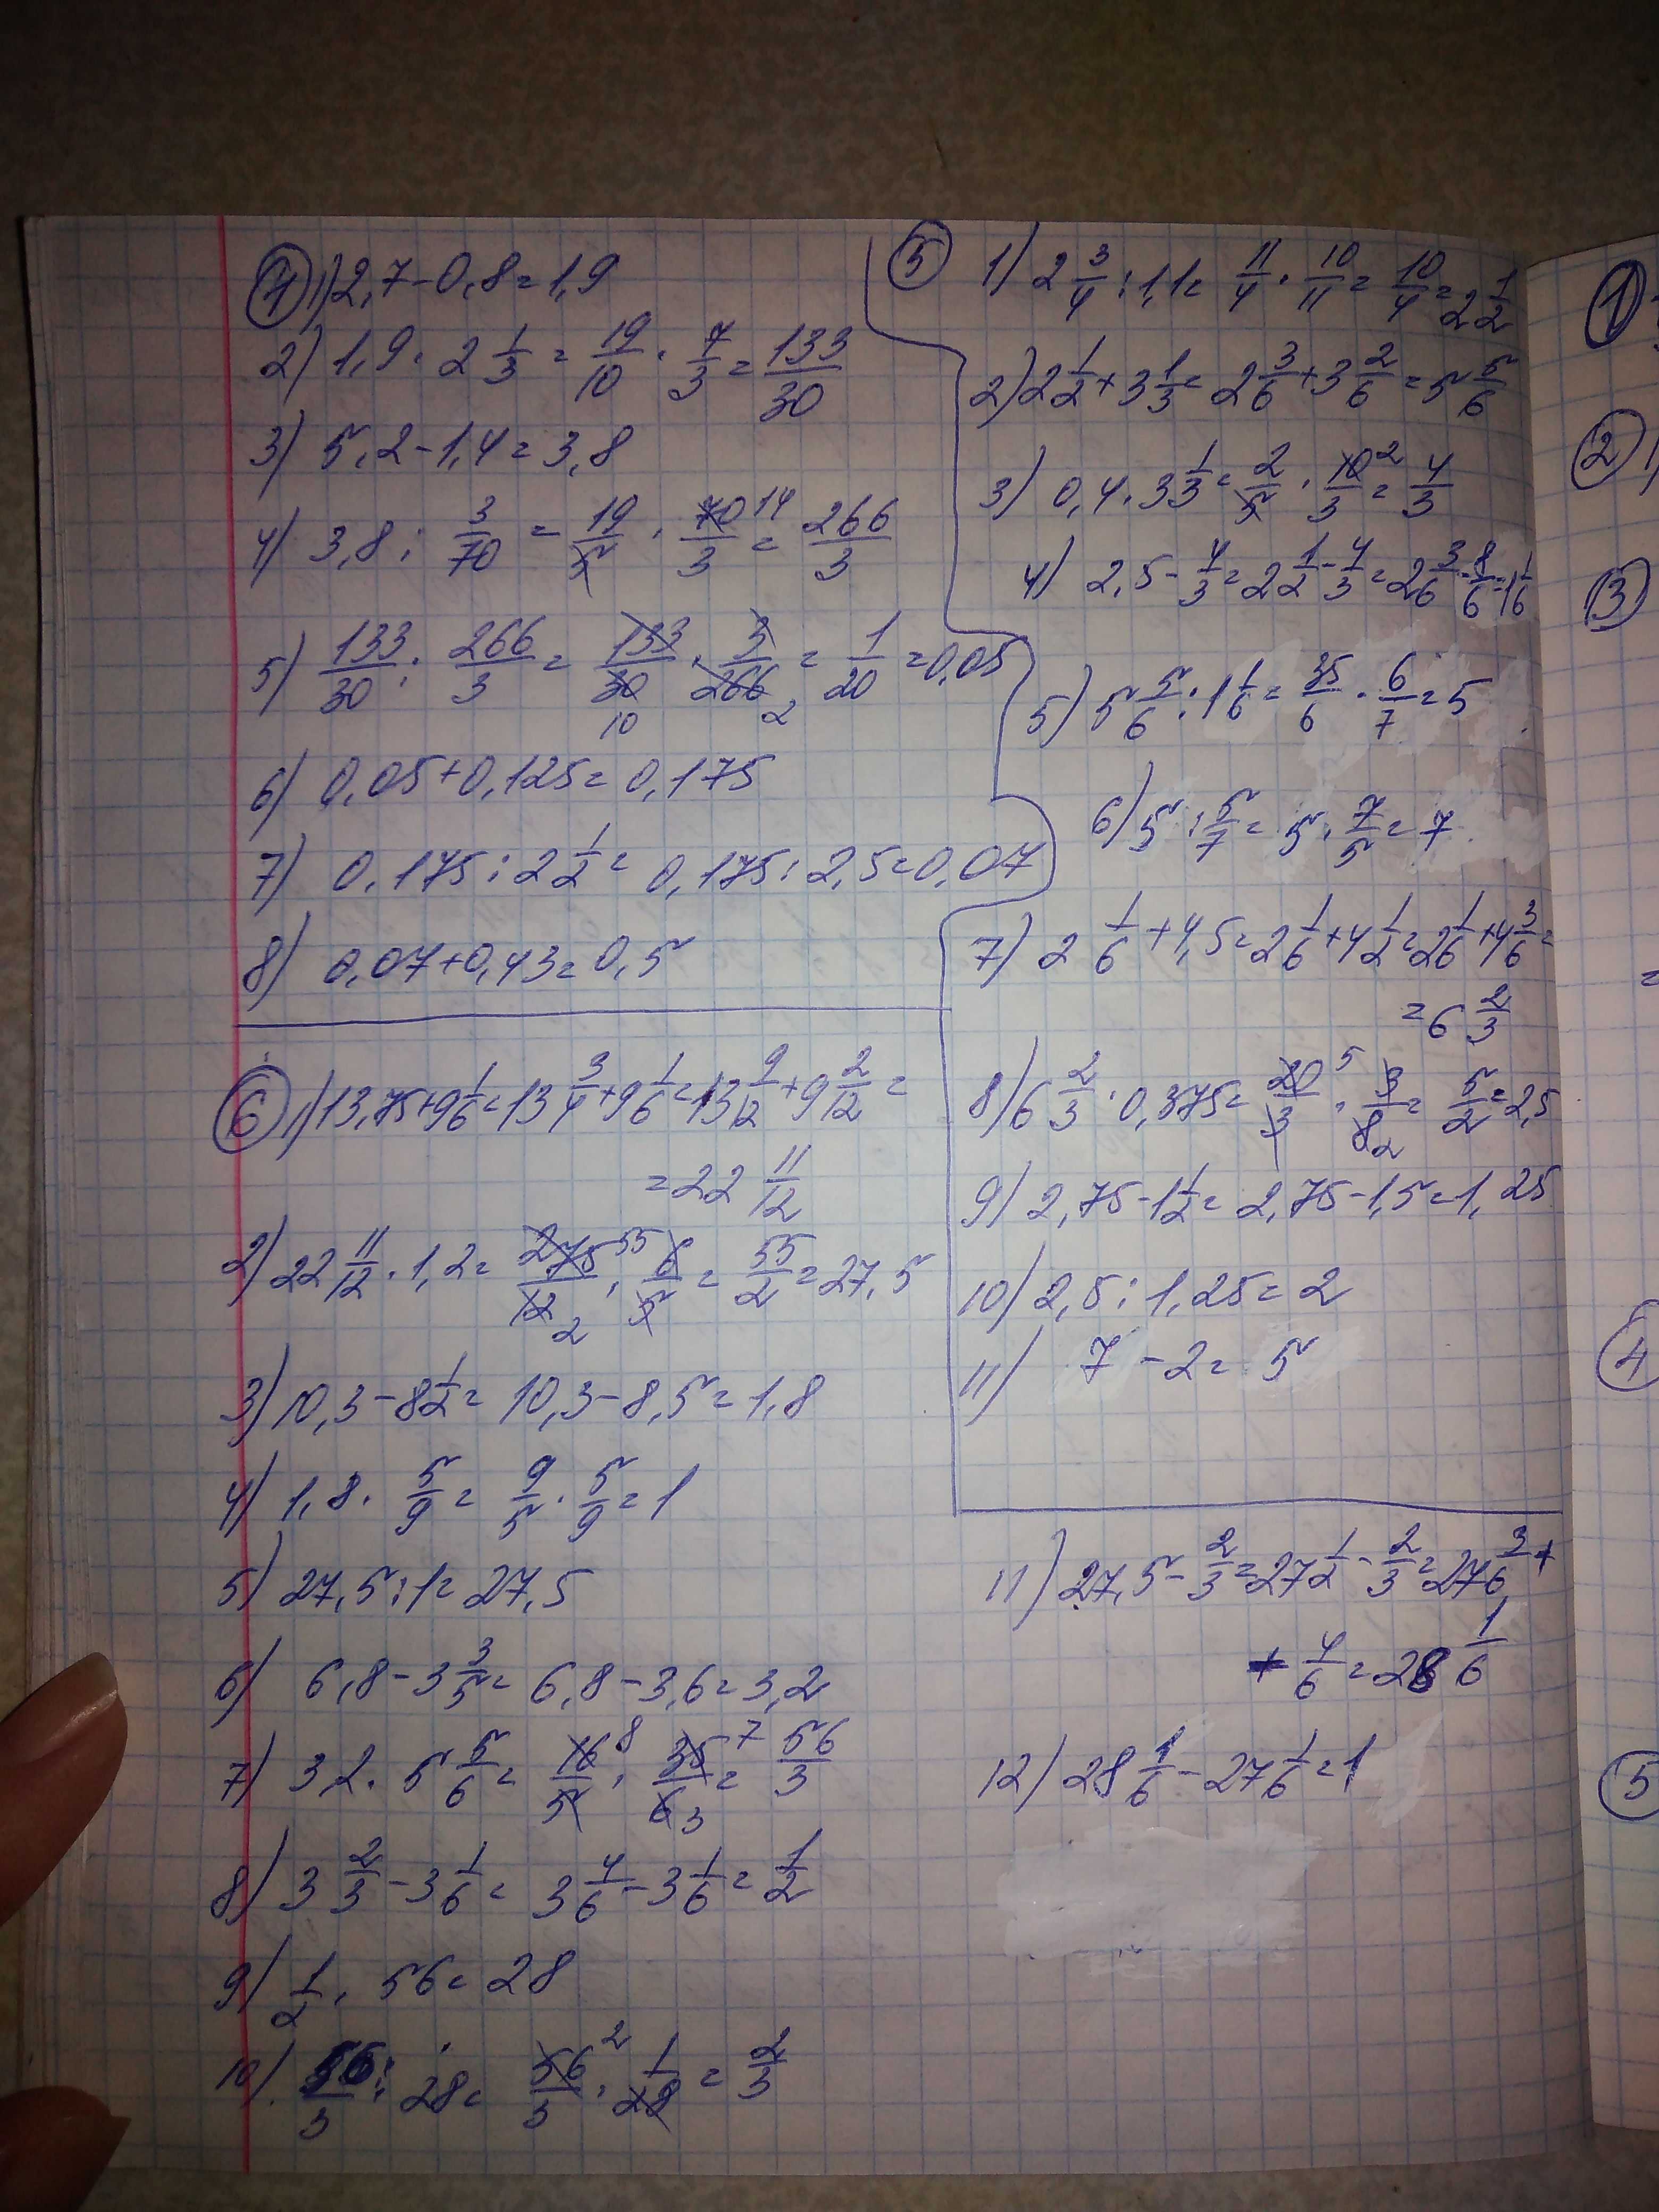 ④ 1) 2,7-0,8=1,9
2) 1,9·2 1/3=19/10·7/3=133/30
3) 5,2-1,4=3,8
4) 3,8:3/70=19/5·70/3 14=266/3
5) 133/30:266/3=133/30·3/266=1/20=0,05
10 2
6) 0,05+0,125=0,175
7) 0,175:2 1/2=0,175:2,5=0,07
8) 0,07+0,43=0,5
⑤ 1) 2 3/4:1,1=11/4·10/11=10/4=2 1/2
2) 2 1/2+3 1/3=2 3/6+3 2/6=5 5/6
3) 0,4·3 1/3=2/5·10/3 2=4/3
4) 2,5-4/3=2 1/2-4/3=2 3/6-8/6=1 1/6
5) 5 5/6:1 1/6=35/6·6/7=5
6) 5:5/7=5·7/5=7
7) 2 1/6+4,5=2 1/6+4 1/2=2 1/6+4 3/6=
=6 2/3
8) 6 2/3·0,375=20/3 5·3/8 2=5/2=2,5
9) 2,75-1 1/2=2,75-1,5=1,25
10) 2,5:1,25=2
11) 7-2=5
⑥ 1) 13,75+9 1/6=13 3/4+9 1/6=13 9/12+9 2/12=
=22 11/12
2) 22 11/12·1,2=275/12 55 2·6/5=55/2=27,5
3) 10,3-8 1/2=10,3-8,5=1,8
4) 1,8·5/9=9/5·5/9=1
5) 27,5:1=27,5
6) 6,8-3 3/5=6,8-3,6=3,2
7) 32·5 5/6=16/5 8·35/6 7 3=56/3
8) 3 2/3-3 1/6=3 4/6-3 1/6=1/2
9) 1/2·56=28
10) 56/3:28=56/3 2·1/28=2/3
11) 27,5-2/3=27 1/2-2/3=27 3/6+
+4/6=28 1/6
12) 28 1/6-27 1/6=1
①
② 1)
③
=
④
⑤